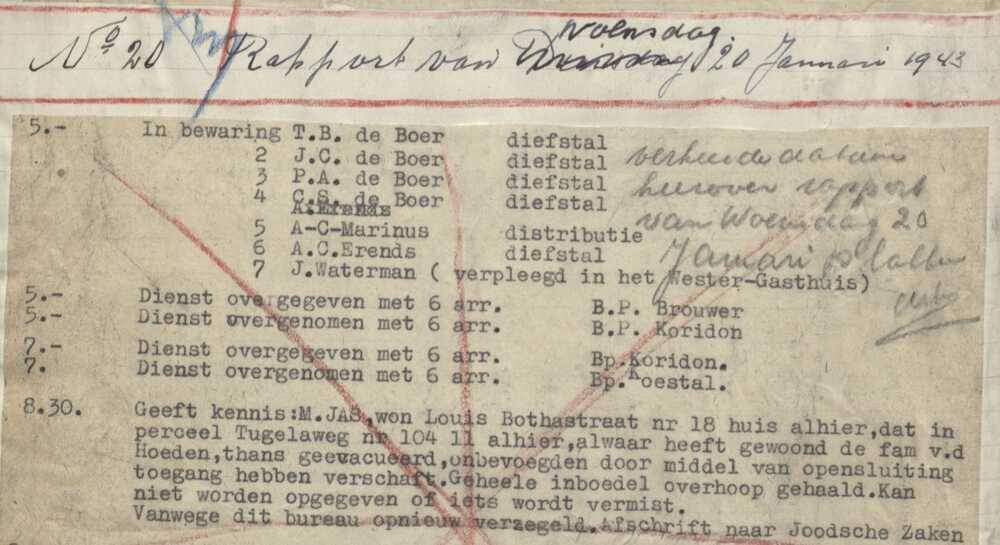 No 20 Rapport van Dinsdag Woensdag 20 Januari 1943
5.- In bewaring T.B. de Boer diefstal
2 J.C. de Boer diefstal
3 P.A. de Boer diefstal
4 C.S. de Boer diefstal
A.Erends
5 A-C-Marinus distributie
6 A.C.Erends diefstal
7 J.Waterman ( verpleegd in het Wester-Gasthuis)
verkeerde datum
hierover rapport
van Woensdag 20
Januari
5.- Dienst overgegeven met 6 arr. B.P. Brouwer
5.- Dienst overgenomen met 6 arr. B.P. Koridon
7.- Dienst overgegeven met 6 arr. Bp.Koridon.
7. Dienst overgenomen met 6 arr. Bp.Koestal.
8.30. Geeft kennis:M.JAS,won Louis Bothastraat nr 18 huis alhier,dat in
perceel Tugelaweg nr 104 11 alhier,alwaar heeft gewoond de fam v.d
Hoeden,thans geevacueerd,onbevoegden door middel van opensluiting
toegang hebben verschaft.Geheele inboedel overhoop gehaald.Kan
niet worden opgegeven of iets wordt vermist.
Vanwege dit bureau opnieuw verzegeld.Afschrift naar Joodsche Zaken